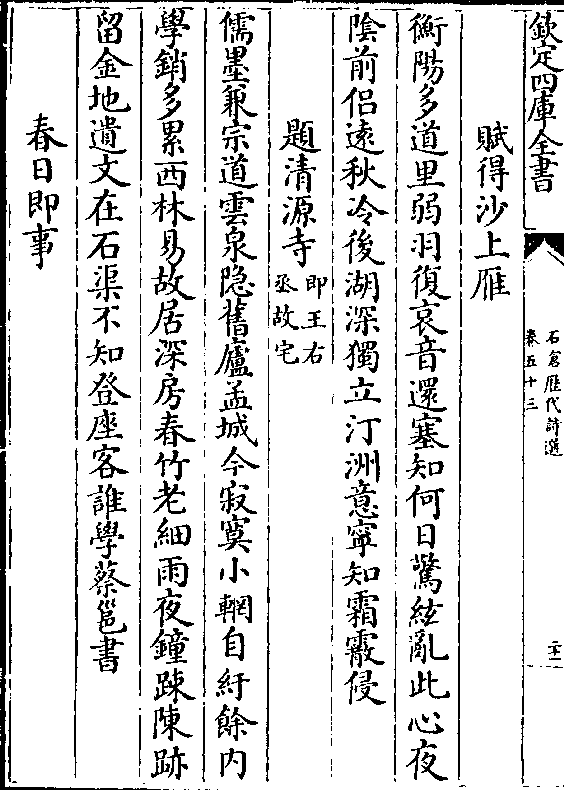 欽定四庫全書
石倉歷代詩選
卷五十三
二十一
賦得沙上雁
衡陽多道里弱羽復哀音還塞知何日驚絃亂此心夜
陰前侣遠秋冷後湖深獨立汀洲意寧知霜霰侵
題清源寺即王右丞故宅
儒墨兼宗道雲泉隐舊廬孟城今寂寞小輞自紆餘内
學銷多累西林易故居深房春竹老細雨夜鐘踈陳跡
留金地遺文在石渠不知登座客誰學蔡邕書
春日即事